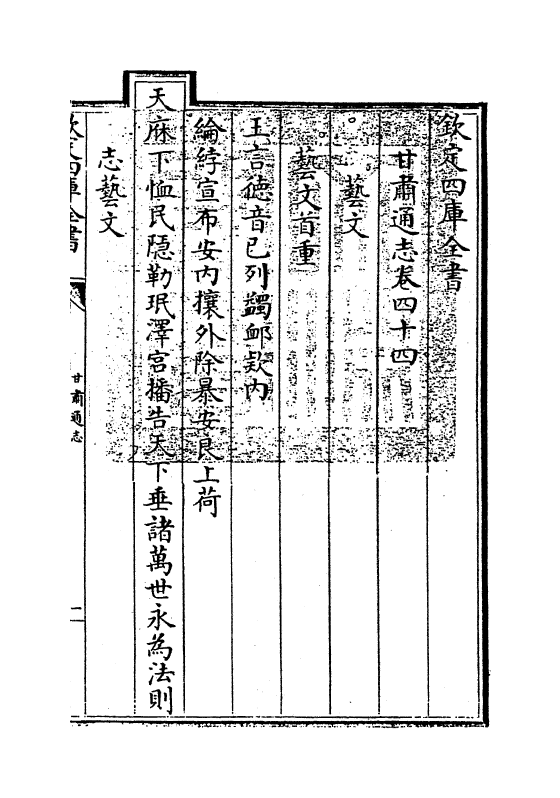 欽定四庫全書
甘肅通志卷四十四
藝文
藝文首重
王言德音已列蠲䘏欵内
綸綍宣布安内攘外除暴安良上荷
天庥下恤民隠勒珉澤宫播告天下垂諸萬世永為法則
志藝文
欽定四庫全書
甘肅通志